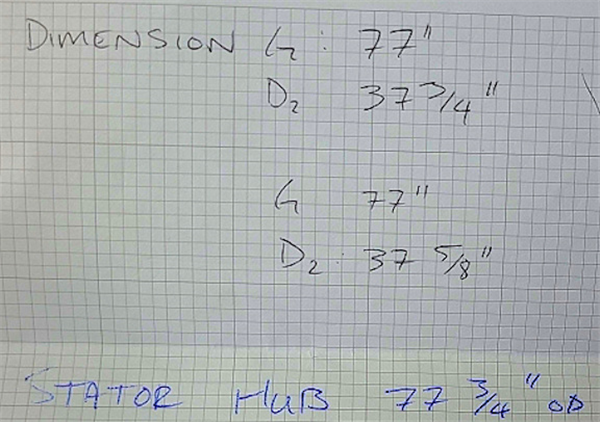 DIMENSION G : 77"
D2 37 3/4"
G 77"
D2 : 37 5/8"
STATOR HUB 77 3/4" OD